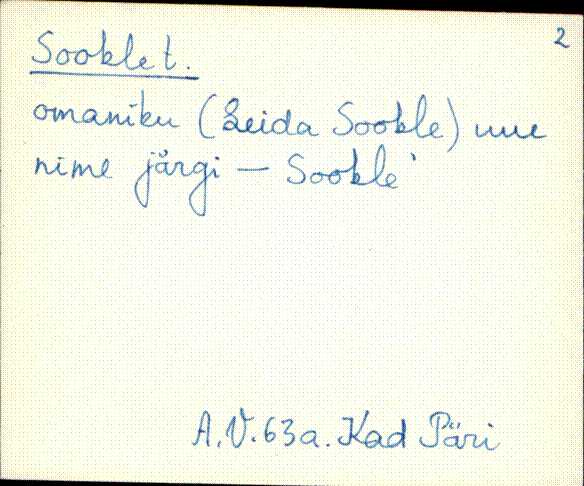 2
Sooklet.
omaniku (Leida Sookle) uue
nime järgi — Sookle'
A.V.63a. Kad Päri